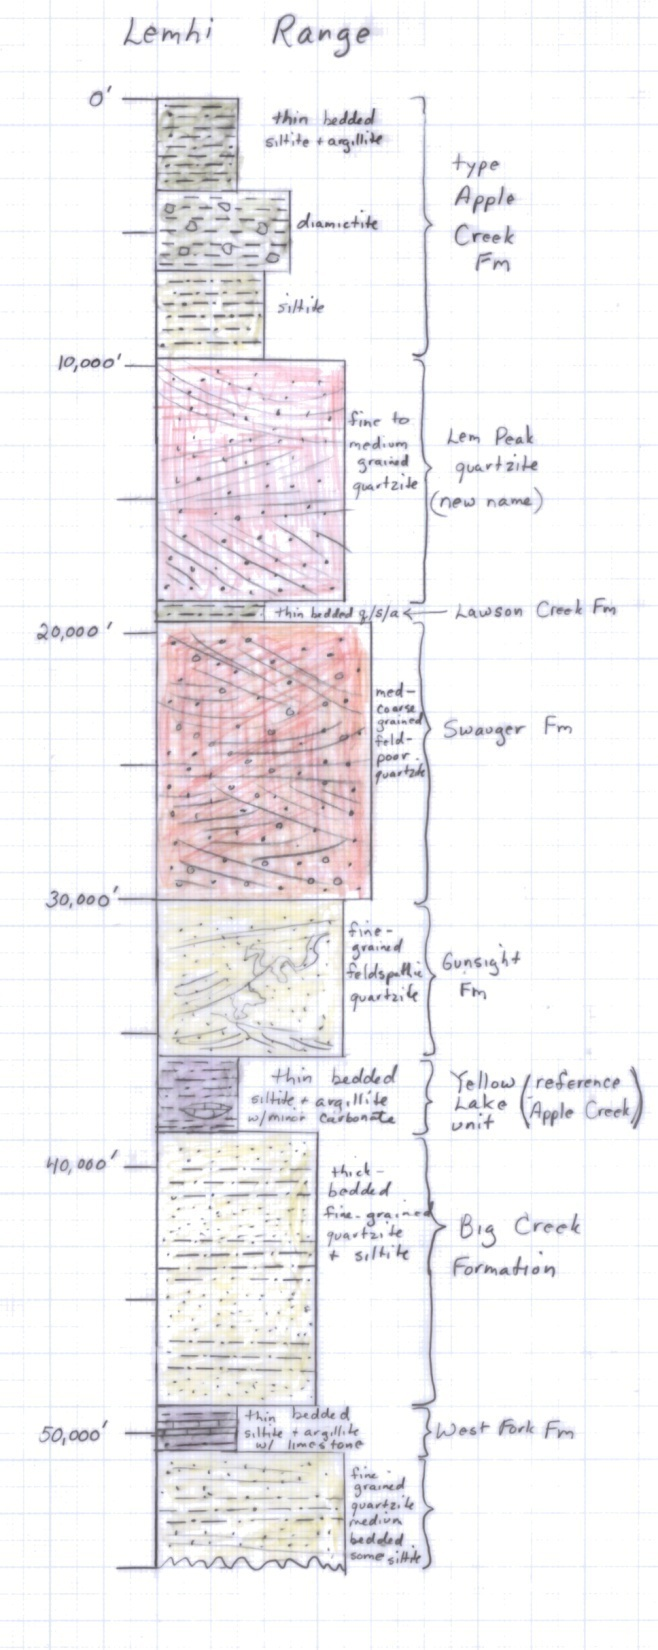 Lemhi Range
0'
thin bedded
siltite + argillite
type
Apple
Creek
Fm
diamictite
siltite
10,000'
fine to
medium
grained
quartzite
Lem Peak
quartzite
(new name)
thin bedded q/s/a ← Lawson Creek Fm
20,000'
med-
coarse
grained
feld-
poor
quartzite
Swauger Fm
30,000'
fine-
grained
feldspathic
quartzite
Gunsight
Fm
thin bedded
siltite + argillite
w/minor carbonate
Yellow
Lake
unit
(reference
Apple Creek)
40,000'
thick-
bedded
fine-grained
quartzite
+ siltite
Big Creek
Formation
50,000'
thin bedded
siltite + argillite
w/ limestone
West Fork Fm
fine
grained
quartzite
medium
bedded
some siltite